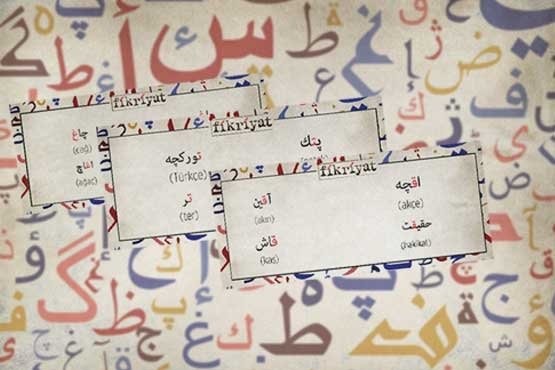 fikriyat
چاغ
(çağ)
اغاچ
(ağaç)
fikriyat
پتك
توركچه
(Türkçe)
تر
(ter)
fikriyat
اقچه
(akçe)
آقين
(akın)
حقيقت
(hakikat)
قاش
(kaş)